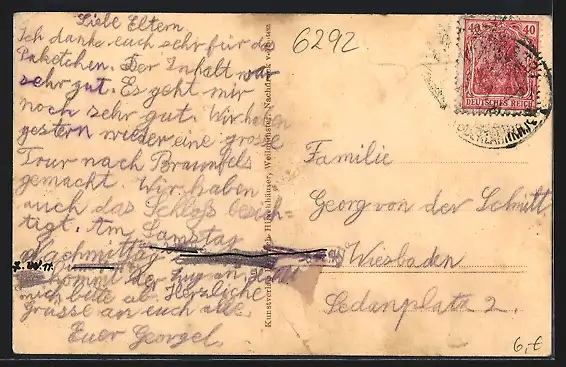 Liebe Eltern
Ich danke euch sehr für das
Paketchen. Der Inhalt war
sehr gut. Es geht mir
noch sehr gut. Wir haben
gestern wieder eine grosse
Tour nach Braunfels
gemacht. Wir haben
auch das Schloß besich-
tigt. Am Samstag
Nachmittag
kommt der Zug an
mich bitte ab. Herzliche
grüsse an euch alle,
Euer Georgel.
6292
40 40
DEUTSCHES REICH
Familie
Georg von der Schmitt
Wiesbaden
Sedanplatz 2.
6,-€